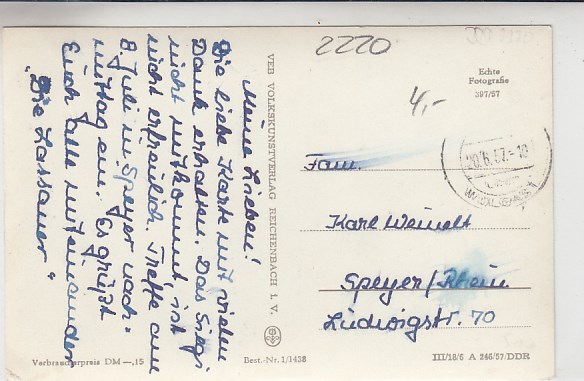 2220
Meine Lieben!
Die liebe Karte mit vielen
Dank erhalten. Das Sigi
nicht mitkommt, ist
nicht erfreulich. Treffe am
8. Juli in Speyer nach=
mittag ein. Es grüßt
Euch alle miteinander
"Die Lassauer"
VEB VOLKSKUNSTVERLAG REICHENBACH I. V.
Echte
Fotografie
397/57
4,-
20.6.57.-18
Fam.
Karl Weinelt
Speyer/Rhein
Ludwigstr. 70
Verbraucherpreis DM —,15
Best.-Nr. 1/1438
III/18/6 A 246/57/DDR